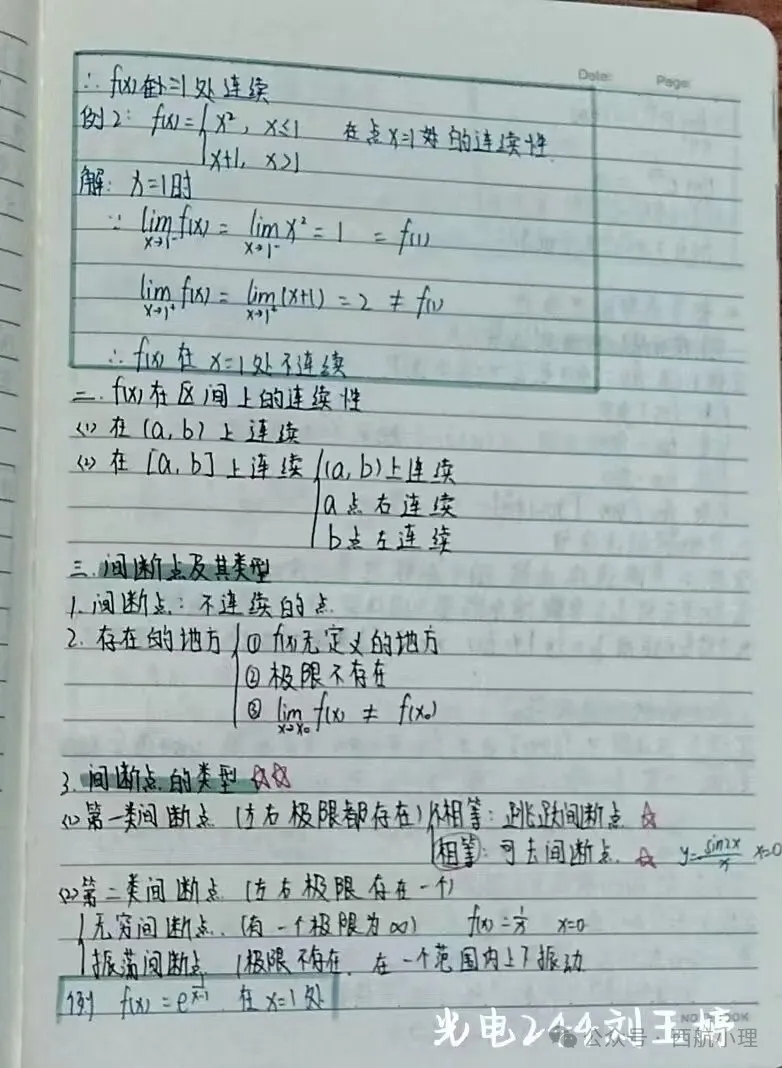 Date: Page:
∴ f(x)在x=1处连续
例2: f(x)={x², x≤1 在点x=1处的连续性.
x+1, x>1
解: x=1时
∵ lim x→1⁻ f(x) = lim x→1⁻ x² = 1 = f(1)
lim x→1⁺ f(x) = lim x→1⁺ (x+1) = 2 ≠ f(1)
∴ f(x) 在 x=1处不连续
二. f(x)在区间上的连续性
(1) 在(a,b) 上连续
(2) 在[a,b]上连续{(a,b)上连续
a点右连续
b点左连续
三. 间断点及其类型
1. 间断点: 不连续的点.
2. 存在的地方{① f(x)无定义的地方
② 极限不存在
③ lim x→x₀ f(x) ≠ f(x₀)
3. 间断点的类型 ☆☆
(1) 第一类间断点 (左右极限都存在){不相等: 跳跃间断点 ☆
相等: 可去间断点. ☆ y=sin2x/x x=0
(2) 第二类间断点 (左右极限存在一个)
{无穷间断点. (有一个极限为∞) f(x)=1/x x=0
振荡间断点 (极限不存在. 在一个范围内上下振动
例 f(x)=e^{1/(x-1)} 在x=1处
NOTEBOOK
光电244刘王婷
公众号·西航小理